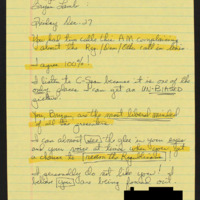 Bryan Lamb
Friday Dec. 27
You had two calls this A.M. complaining
about the Rep./Dem./Other call in lines
I agree 100%!
I listen to C-Span because it is one of the
only places I can get an UN-BIASED
You, Bryan, are the most liberal minded
of all the
I can almost see the glee in your eyes
and your voice at home when you get
a chance to the Republicans.
I personally do not like you! I
believe you are being forced out.